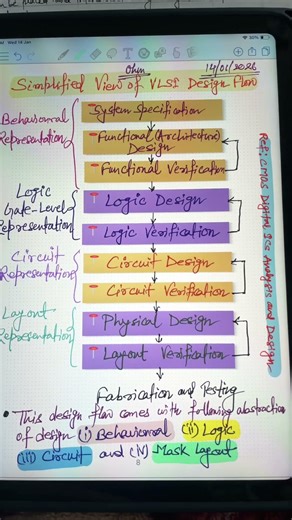 Wed 14 Jan
20%
Ohm
14/01/2026
Simplified View of VLSI Design Flow
Behavioural
Representation
System Specification
Functional (Architecture)
Design
Functional Verification
Logic
Gate-Level
Representation
Logic Design
Logic Verification
Circuit
Representation
Circuit Design
Circuit Verification
Layout
Representation
Physical Design
Layout Verification
Fabrication and Testing
Ref: CMOS Digital ICs Analysis and Design
• This design flow comes with following abstraction
of design (i) Behavioural (ii) Logic
(iii) Circuit and (iv) Mask Layout
8